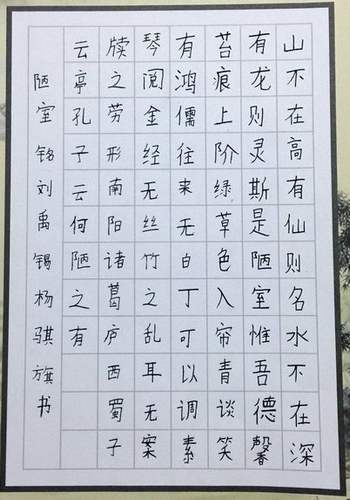 山不在高有仙则名水不在深
有龙则灵斯是陋室惟吾德馨
苔痕上阶绿草色入帘青谈笑
有鸿儒往来无白丁可以调素
琴阅金经无丝竹之乱耳无案
牍之劳形南阳诸葛庐西蜀子
云亭孔子云何陋之有
陋室铭刘禹锡杨骐旗书